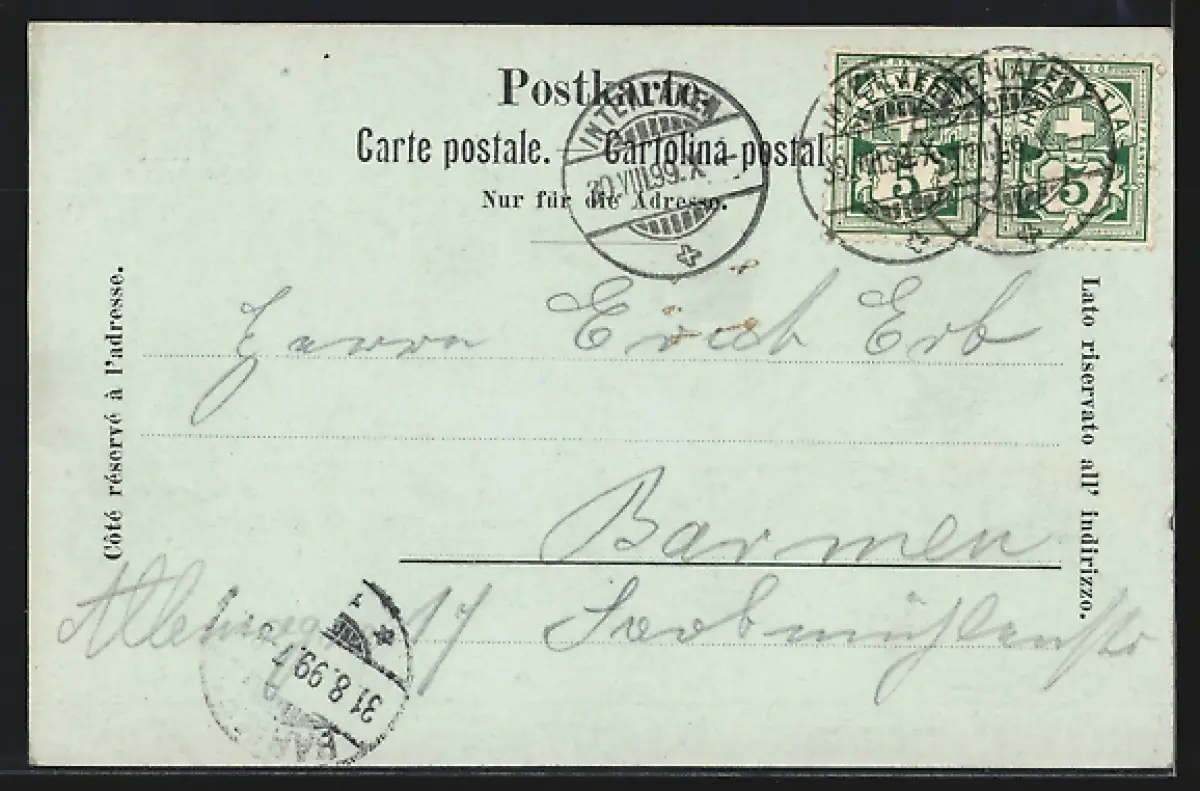 Postkarte.
Carte postale. — Cartolina postal
Nur für die Adresse.
INTERLAKEN
30.VIII.99.X
INTERLAKEN
INTERLAKEN
HELVETIA
5
5
Côté réservé à l'adresse.
Lato riservato all' indirizzo.
Herrn Erich Erb
Barmen
17
31.8.99.